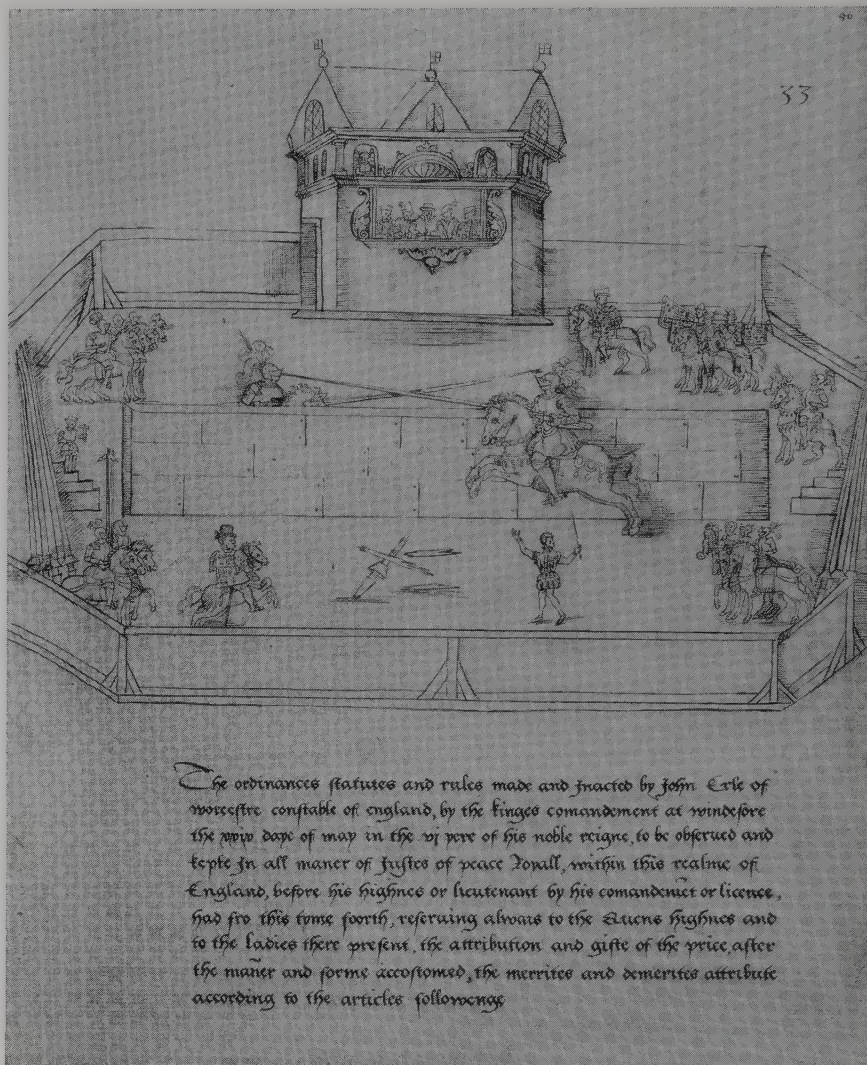 40
33
The ordinances statutes and rules made and Inacted by John Erle of
worcestre constable of england, by the kinges comandement at windesore
the xxix daye of may in the vj yere of his noble reigne, to be obserued and
kepte In all maner of Justes of peace Royall, within this realme of
England, before his highnes or lieutenant by his comandemēt or licence,
had frō this tyme foorth, reseruing alwais to the Quens highnes and
to the ladies there present, the attribution and gifte of the price, after
the mañer and forme accostomed, the merrites and demerites attribute
according to the articles followenge